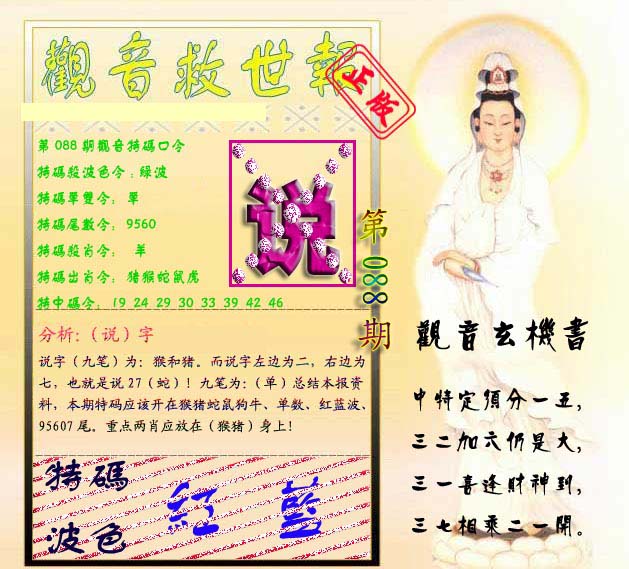 觀音救世報
正版
第088期觀音特碼口令
特碼殺波色令:綠波
特碼單雙令: 單
特碼尾數令: 9560
特碼殺肖令: 羊
特碼出肖令: 猪猴蛇鼠虎
特中碼令: 19 24 29 30 33 39 42 46
说
第088期
分析:（说）字
说字（九笔）为：猴和猪。而说字左边为二，右边为
七，也就是说27（蛇）！九笔为：（单）总结本报资
料，本期特码应该开在猴猪蛇鼠狗牛、单数、红蓝波、
95607尾。重点两肖应放在（猴猪）身上！
特碼
波色
紅 藍
觀音玄機書
中特定須分一五，
三二加六仍是大，
三一喜逢財神到，
三七相乘二一開。